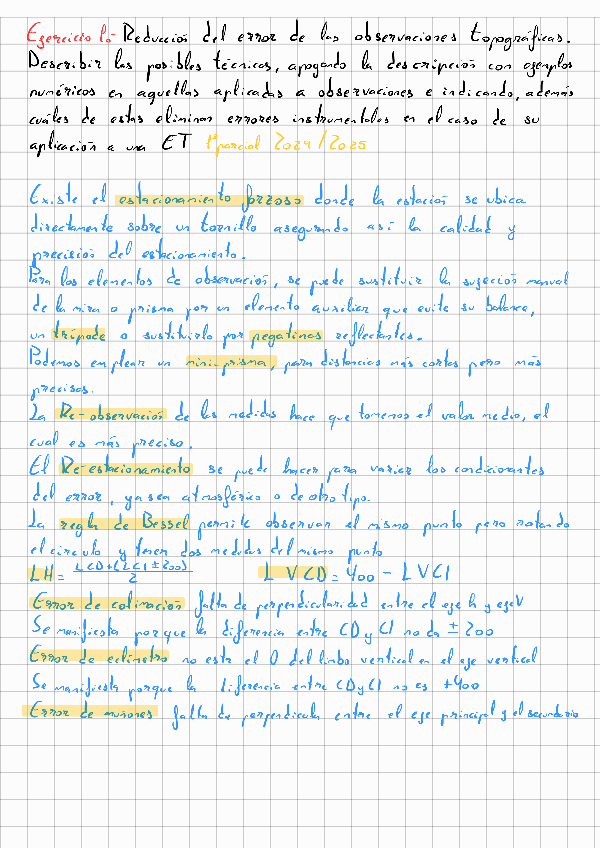 Ejercicio 1.- Reducción del error de las observaciones topográficas.
Describir las posibles técnicas, apoyando la descripción con ejemplos
numéricos en aquellas aplicadas a observaciones e indicando, además
cuáles de estas eliminan errores instrumentales en el caso de su
aplicación a una ET 1º parcial 2024/2025
Existe el estacionamiento forzoso donde la estación se ubica
directamente sobre un tornillo asegurando así la calidad y
precisión del estacionamiento.
Para los elementos de observación, se puede sustituir la sujeción manual
de la mira o prisma por un elemento auxiliar que evite su balance,
un trípode o sustituirlo por pegatinas reflectantes.
Podemos emplear un mini-prisma, para distancias más cortas pero más
precisas.
La Re-observación de las medidas hace que tomemos el valor medio, el
cual es más preciso.
El Re-estacionamiento se puede hacer para variar los condicionantes
del error, ya sea atmosférico o de otro tipo.
La regla de Bessel permite observar el mismo punto pero rotando
el círculo y tener dos medidas del mismo punto
LH = LCD+(LCI ± 200) / 2 L VCD = 400 - L VCI
Error de colimación falta de perpendicularidad entre el eje h y eje V
Se manifiesta porque la diferencia entre CD y CI no da ± 200
Error de eclímetro no está el 0 del limbo vertical en el eje vertical
Se manifiesta porque la diferencia entre CD y CI no es +400
Error de muñones falta de perpendicula entre el eje principal y el secundario